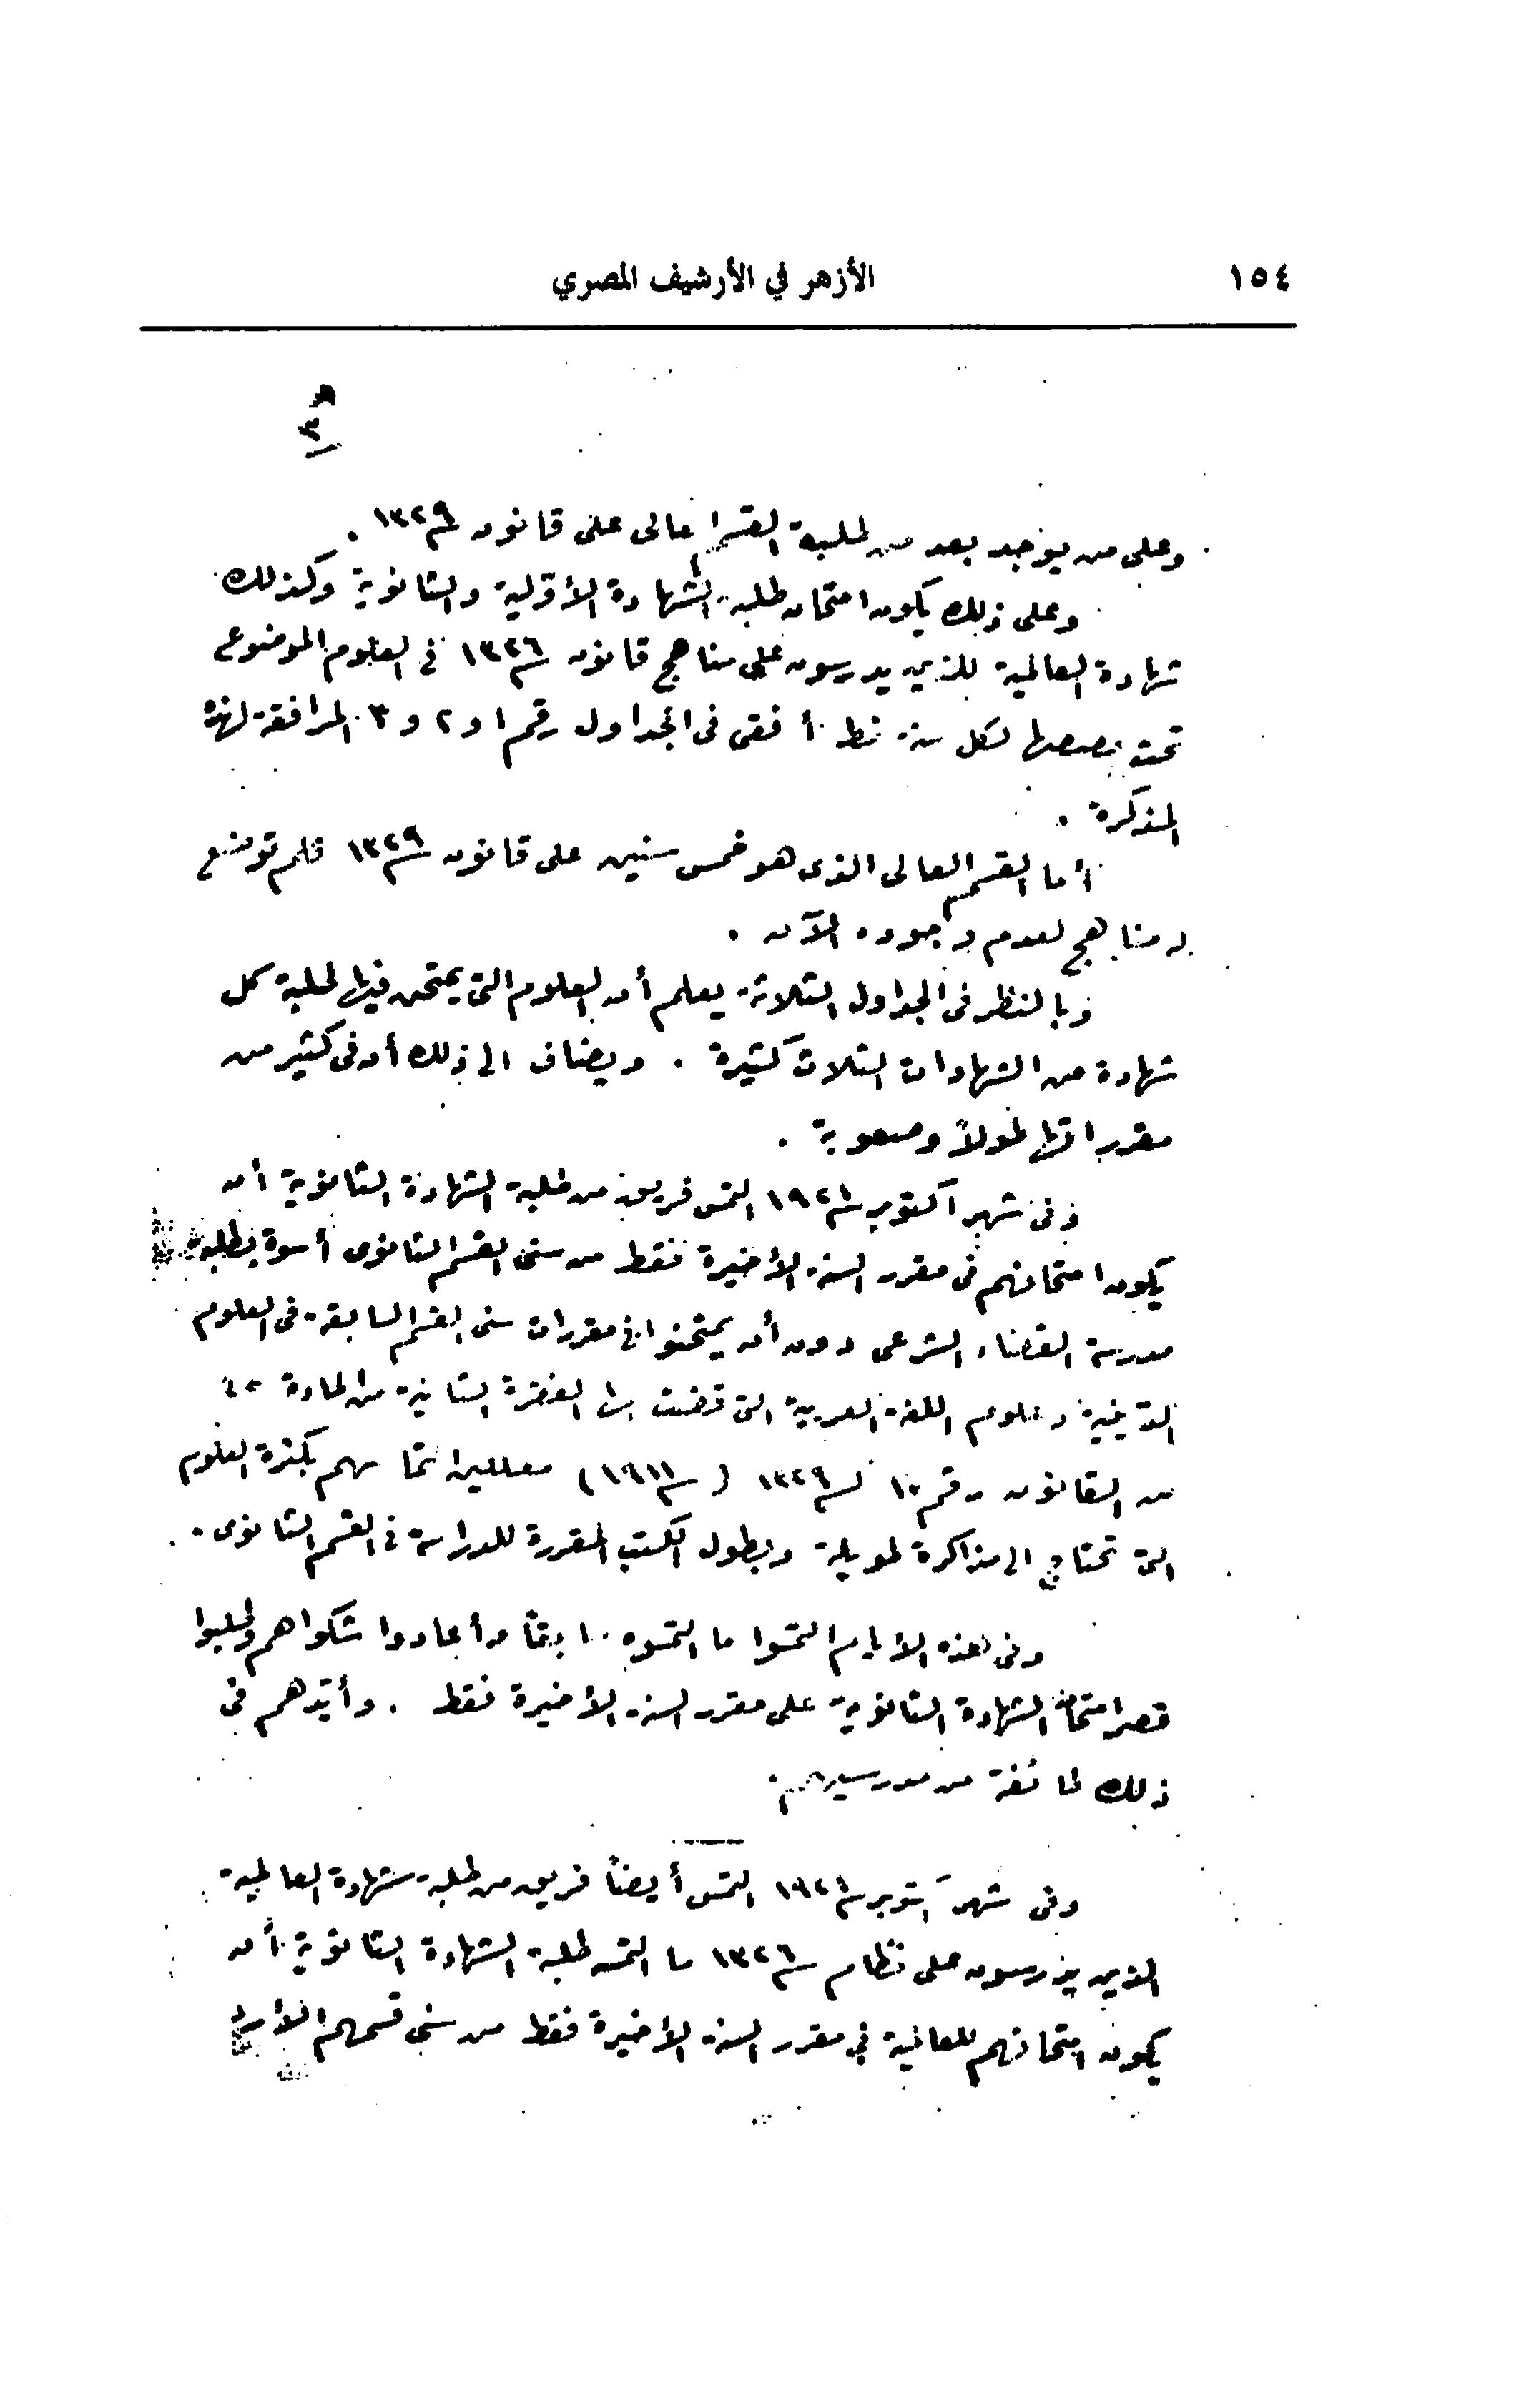 ١٥٤
الأزهر في الأرشيف المصري
٣
وعلى من يوجد بعد من طلبة القسم العالى على قانون سنة ١٣٢٩ .
وعلى ذلك يكون امتحان طلبة الشهادة الأولية والثانوية وكذلك
شهادة العالمية للذين يدرسون على مناهج قانون سنة ١٣٢٦ فى العلوم الموضوع
تحت بعضها لكل سنة خط أفقى فى الجداول رقم ١ و ٢ و ٣ المرافقة لهذه
المذكرة .
أما القسم العالى الذى هو خمس سنين على قانون سنة ١٣٢٩ فلم توضع
له مناهج لعدم وجوده الآن .
وبالنظر فى الجداول الثلاثة يعلم أن العلوم التى يمتحن فيها طلبة كل
شهادة من الشهادات الثلاث كثيرة . ويضاف الى ذلك أن فى كثير من
مقرراتها طولاً وصعوبة .
وفى شهر أكتوبر سنة ١٩٢١ التمس فريق من طلبة الشهادة الثانوية أن
يكون امتحانهم فى مقرر السنة الأخيرة فقط من سنى القسم الثانوى أسوة بطلبة
مدرسة القضاء الشرعى دون أن يمتحنوا فى مقررات سنى القسم السابقة فى العلوم
الدينية وعلوم اللغة العربية التى قضت بها الفقرة الثانية من المادة
من القانون رقم ١٠ لسنة ١٣٢٩ ( سنة ١٩١١ ) معللين التماسهم بكثرة العلوم
التى تحتاج الى مذاكرة طويلة وبطول الكتب المقررة للدراسة فى القسم الثانوى .
وفى هذه الأيام التمسوا ما التمسوه سابقًا وأعادوا شكواهم وطلبوا
قصر امتحان الشهادة الثانوية على مقرر السنة الأخيرة فقط . وأيدهم فى
ذلك طائفة من مدرسيهم .
وفى شهر أكتوبر سنة ١٩٢١ التمس أيضاً فريق من طلبة شهادة العالمية
الذين يدرسون على نظام سنة ١٣٢٦ ما التمسه طلبة الشهادة الثانوية أن
يكون امتحانهم للعالمية فى مقرر السنة الأخيرة فقط من سنى قسمهم